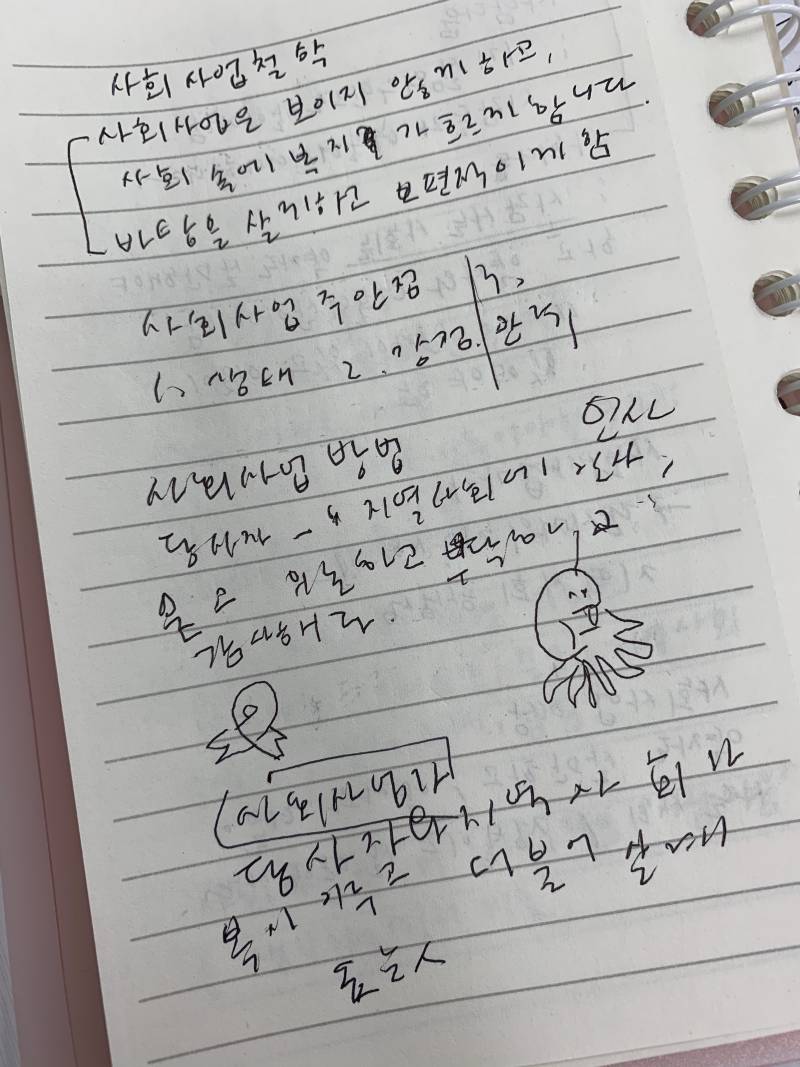 사회사업철학
사회사업은 보이지 않게 하고,
사회 속에 복지가 흐르게 합니다.
바탕을 살리하고 보편적이게 함
사회사업 주안점
1. 생태 2. 강점. 관계
인사
사회사업 방법
당사자 - 지역사회에 인사
묻고 의논하고 부탁하고
감사하다.
(사회사업가)
당사자와 지역사회가
복지 이루고 더불어 살게
돕는 사